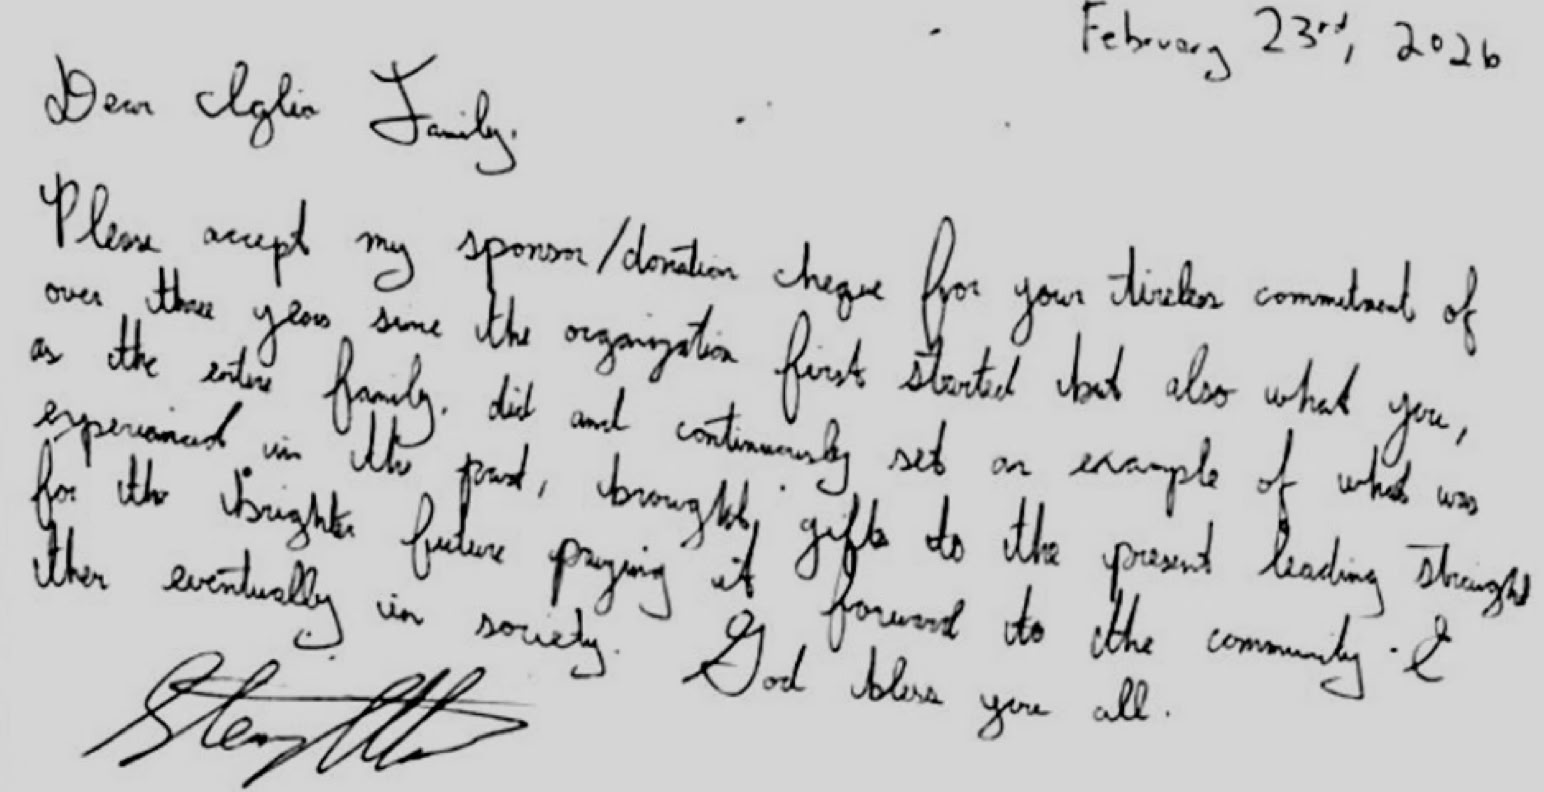 February 23rd, 2026
Dear Aglio Family,
Please accept my sponsor/donation cheque for your tireless commitment of
over three years since the organization first started but also what you,
as the entire family, did and continuously set an example of what was
experienced in the past, brought gifts to the present leading straight
for the brighter future paying it forward to the community &
then eventually in society. God bless you all.